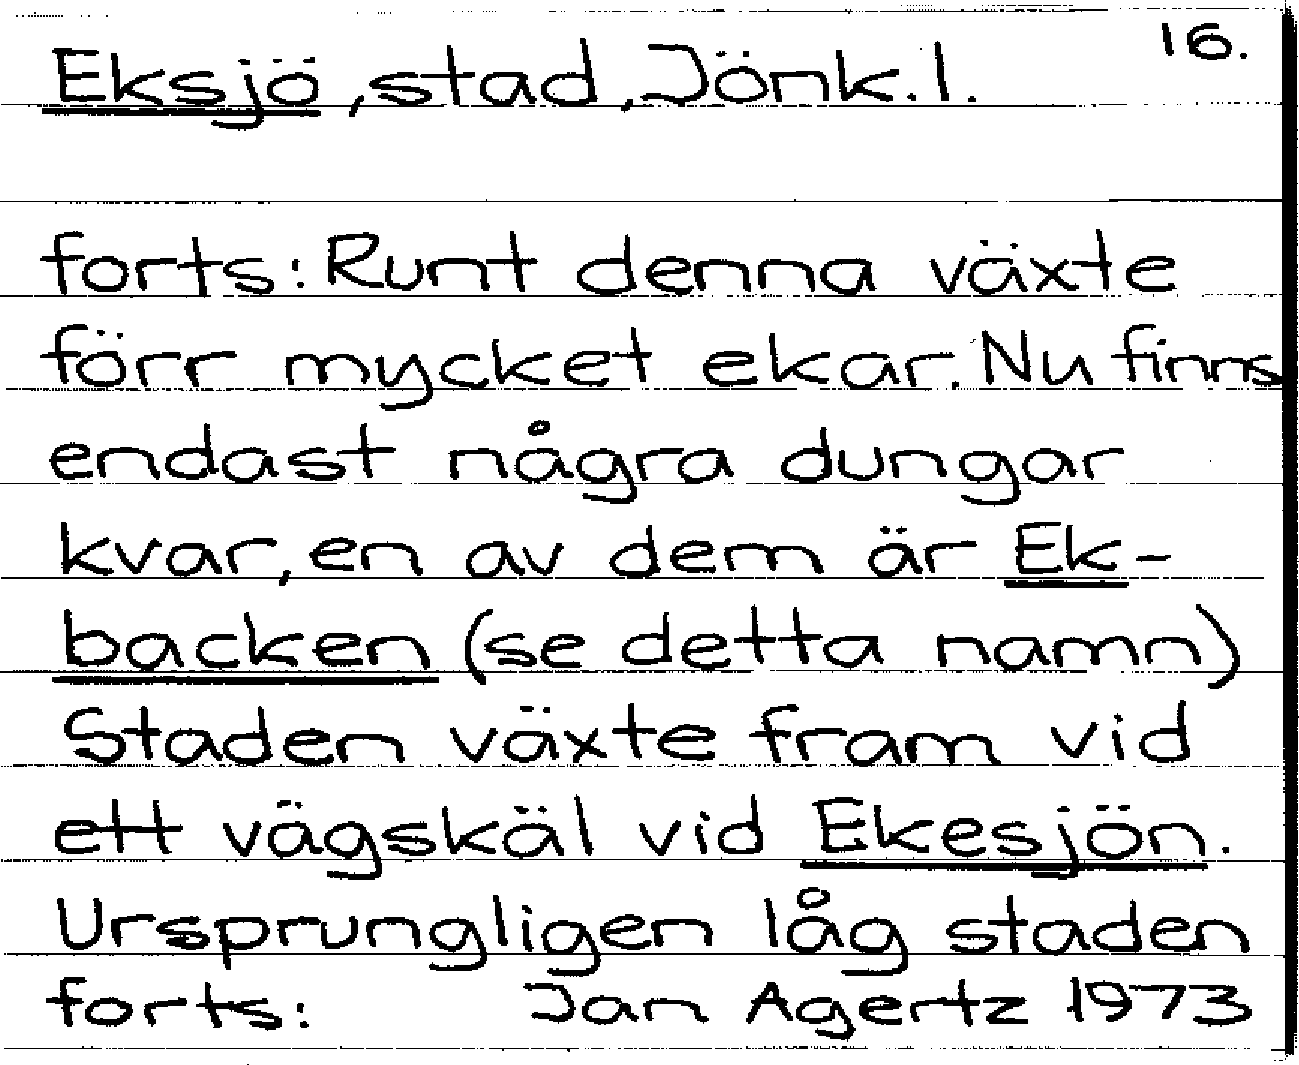 16.
Eksjö, stad, Jönk. l.
forts: Runt denna växte
förr mycket ekar. Nu finns
endast några dungar
kvar, en av dem är Ek-
backen (se detta namn)
Staden växte fram vid
ett vägskäl vid Ekesjön.
Ursprungligen låg staden
forts: Jan Agertz 1973